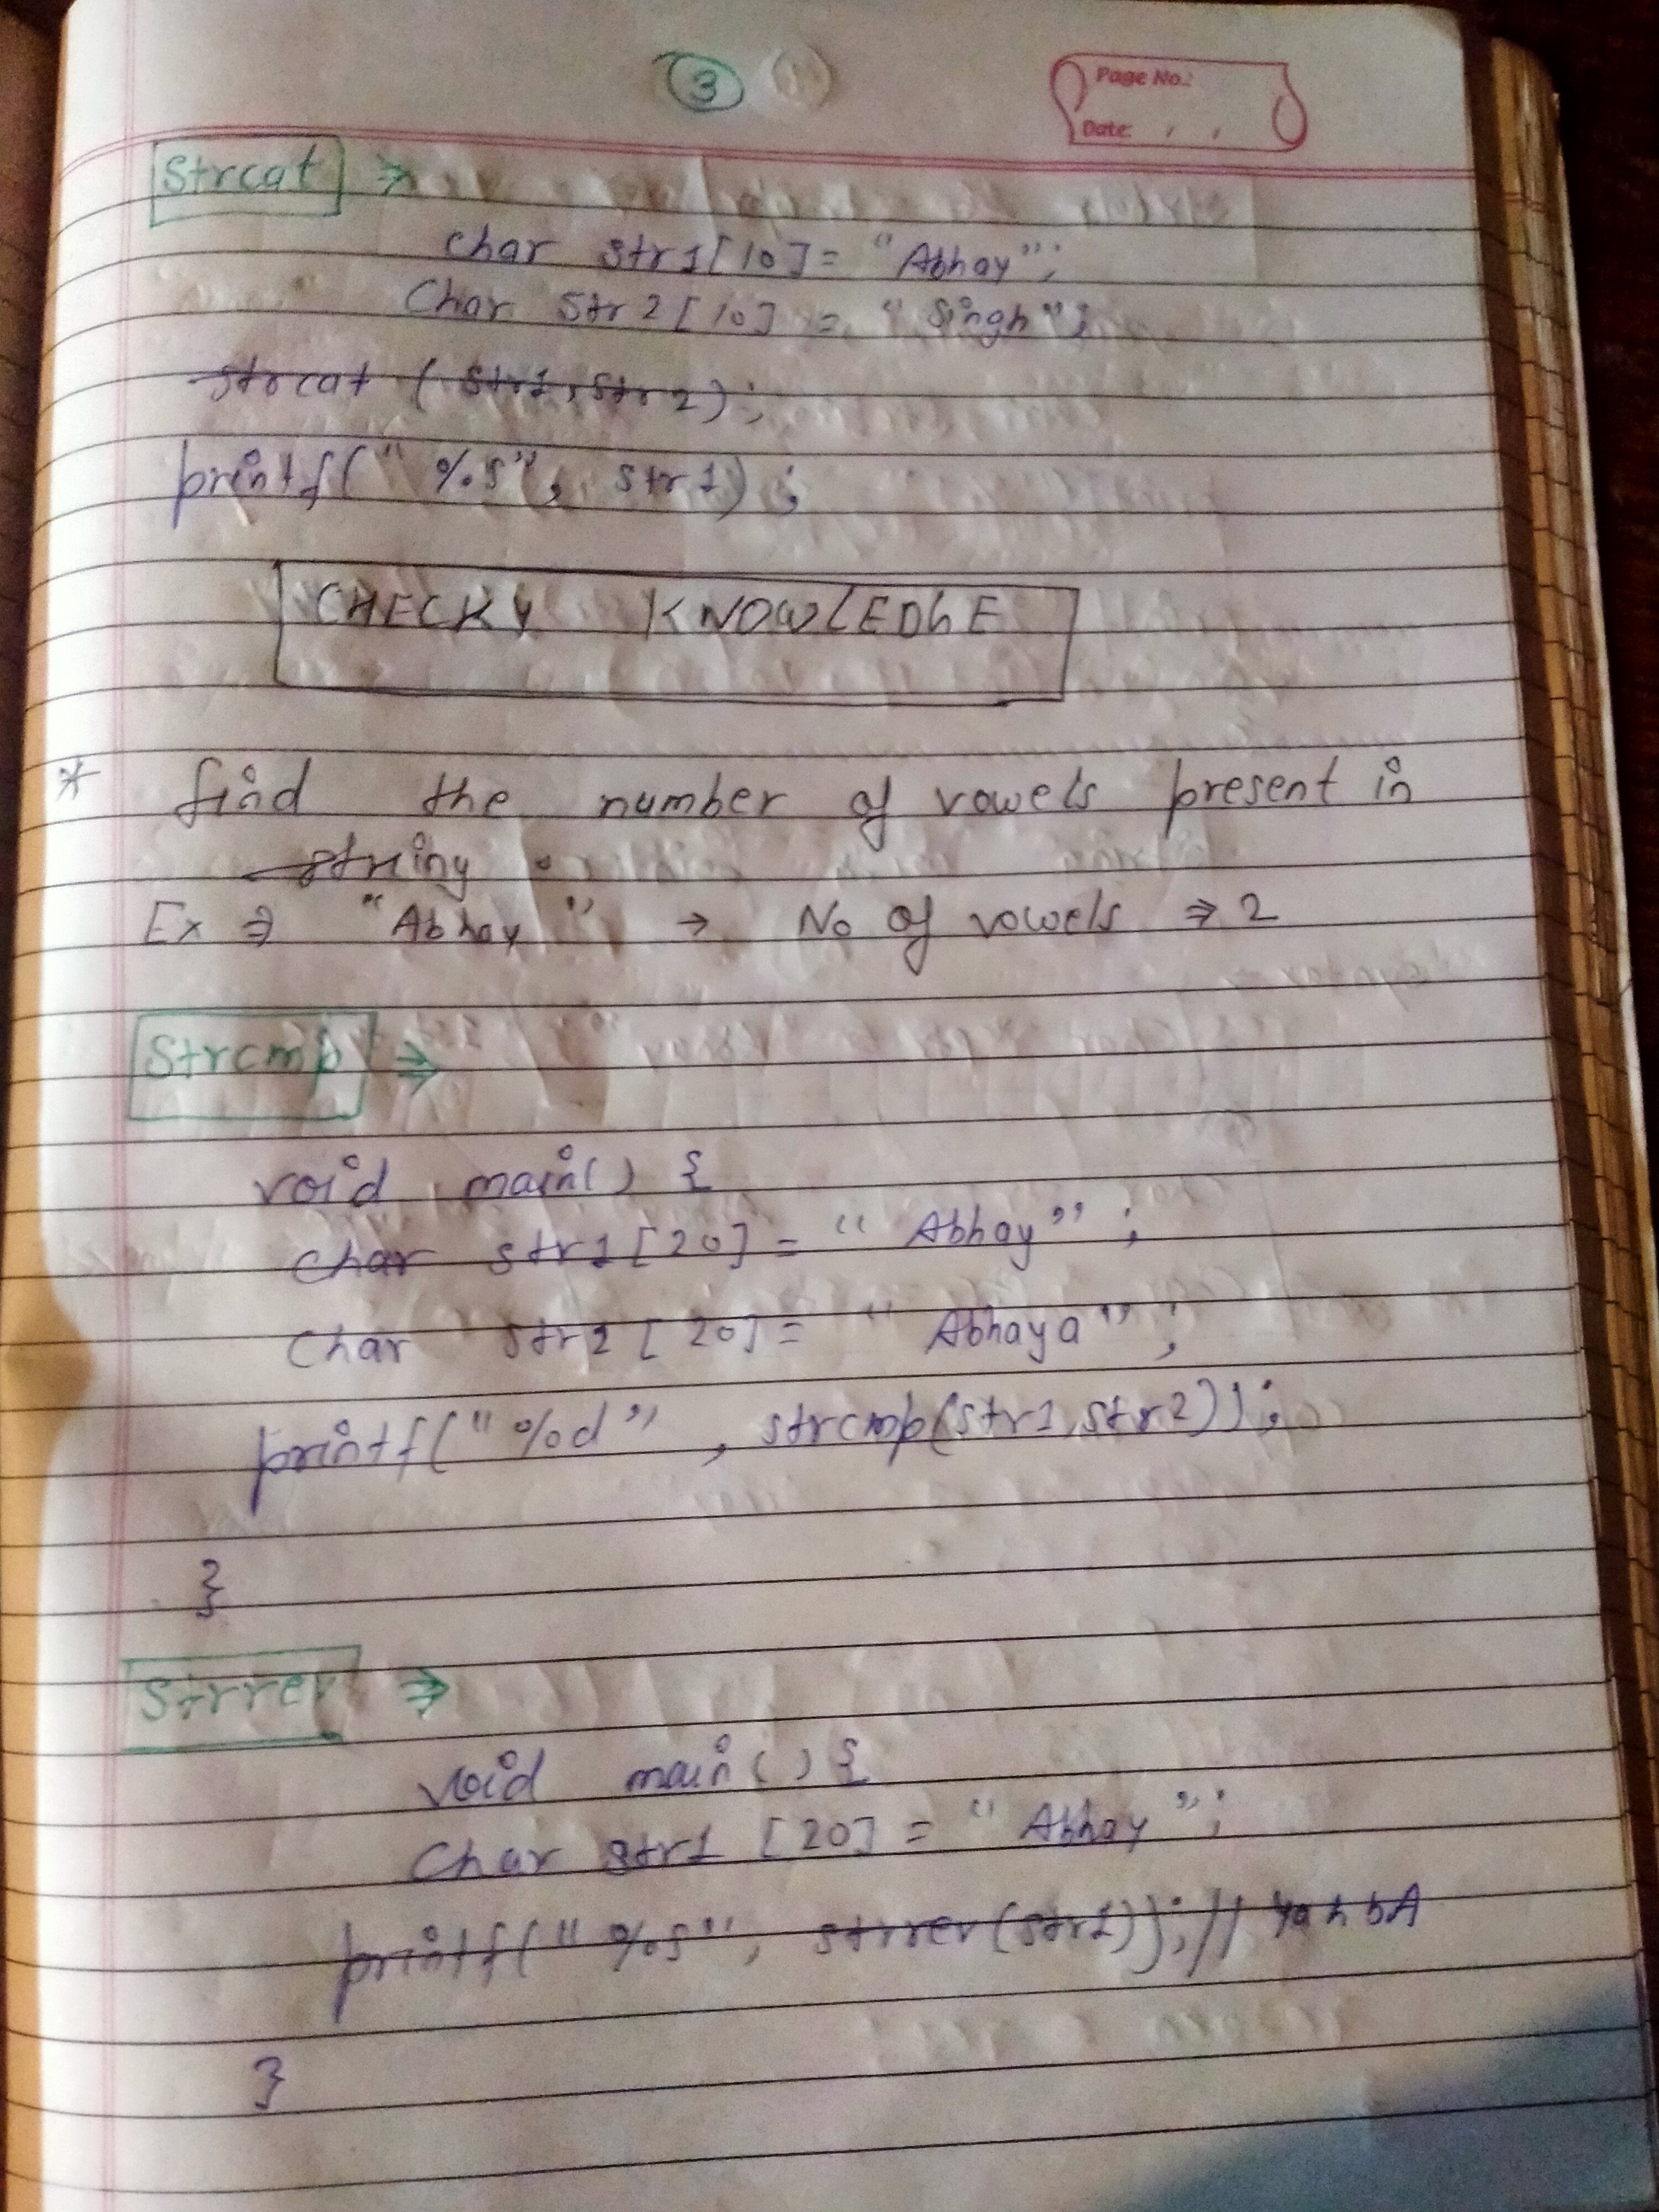 3
Page No.:
Date: / /
Strcat ⇒
char str1[10] = "Abhay";
Char Str2[10] = "Singh";
strcat (str1,str2);
printf("%s", str1);
CHECKY KNOWLEDGE
* find the number of vowels present in
string.
Ex ⇒ "Abhay" → No of vowels ⇒ 2
Strcmp ⇒
void main() {
char str1[20] = "Abhay";
char str2[20] = "Abhaya";
printf("%d", strcmp(str1,str2));
}
Strrev ⇒
void main() {
Char str1 [20] = "Abhay";
printf("%s", strrev(str1)); // YahbA
}